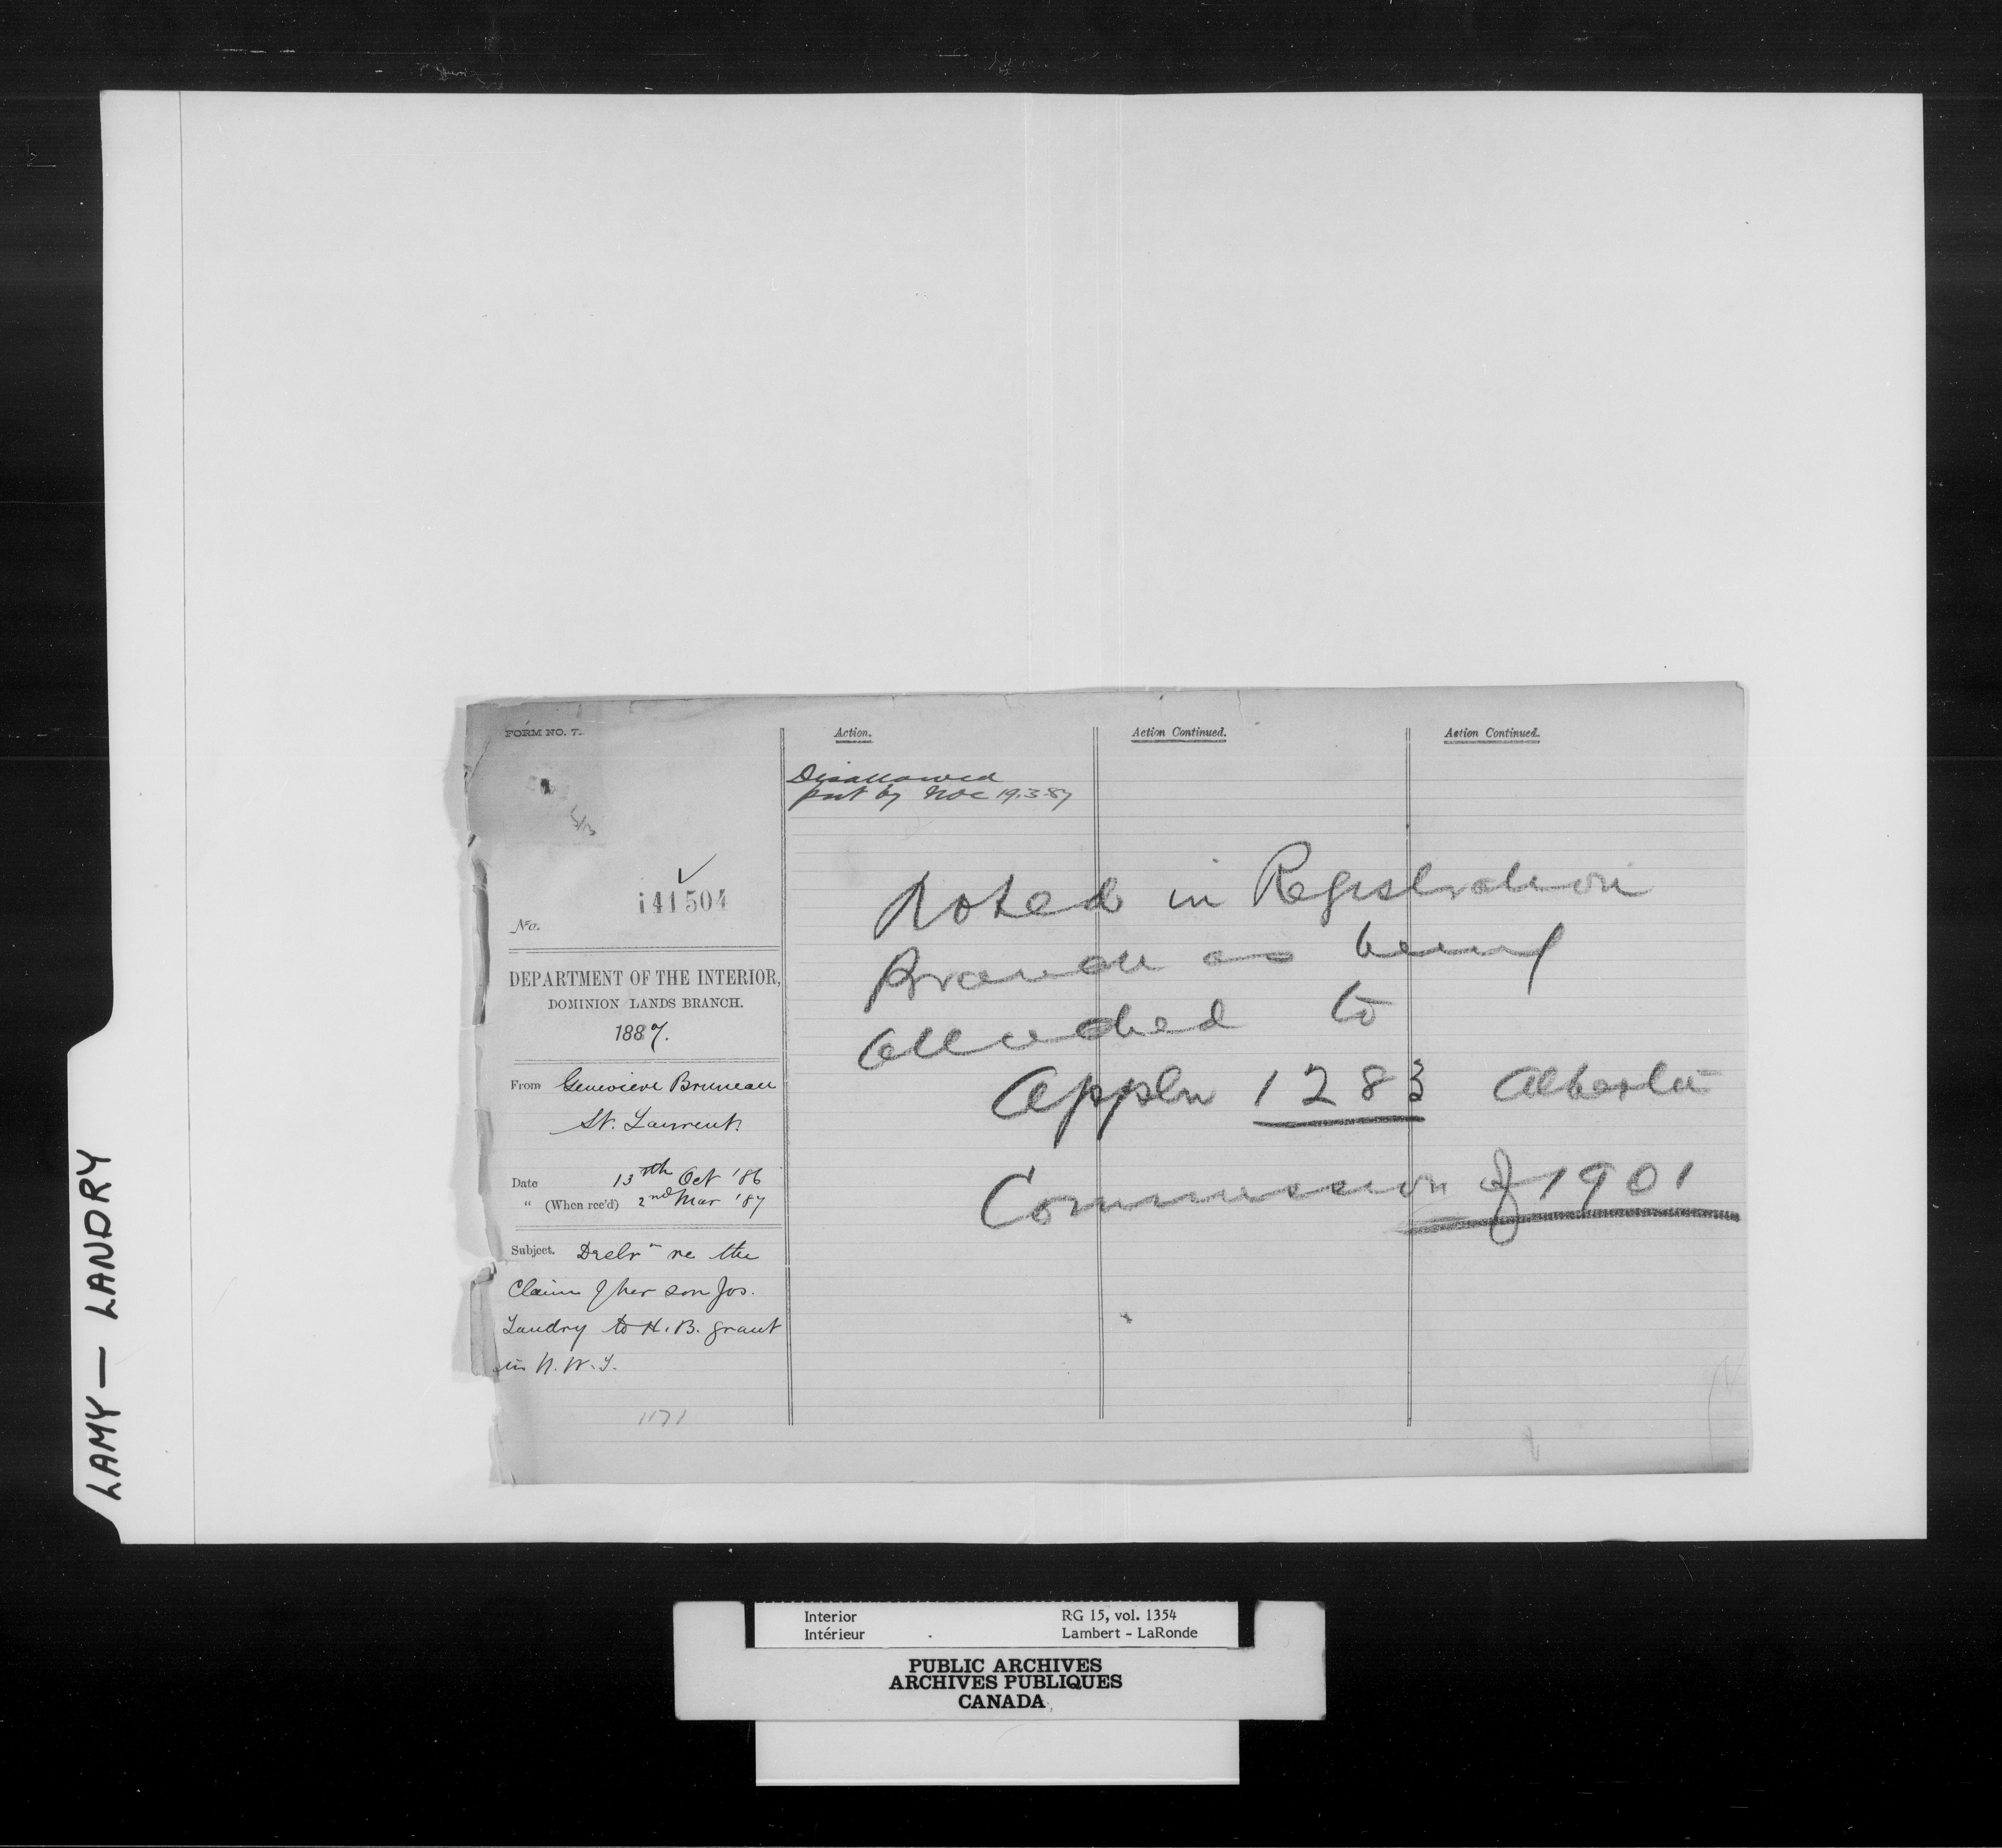 LAMY — LANDRY
FORM NO. 7.
141504
No.
DEPARTMENT OF THE INTERIOR,
DOMINION LANDS BRANCH.
1887.
From Genevieve Bruneau
St. Laurent.
Date 13th Oct '86
" (When rec'd) 2nd Mar '87
Subject. Declrn re the
Claim of her son Jos.
Landry to H. B. grant
in N. W. T.
1171
Action.
Disallowed
put by 19.3.87
Action Continued.
Action Continued.
Noted in Registration
Branch as being
attached to
Appln 1283 Alberta
Commission of 1901
Interior RG 15, vol. 1354
Intérieur Lambert - LaRonde
PUBLIC ARCHIVES
ARCHIVES PUBLIQUES
CANADA